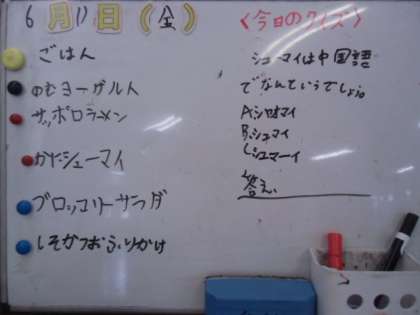 6月17日(金)
ごはん
のむヨーグルト
サッポロラーメン
かたシューマイ
ブロッコリーサラダ
しそかつおふりかけ
〈今日のクイズ〉
シューマイは中国語
でなんていうでしょう。
A.シウマイ
B.シュマイ
C.シュマーイ
答え、